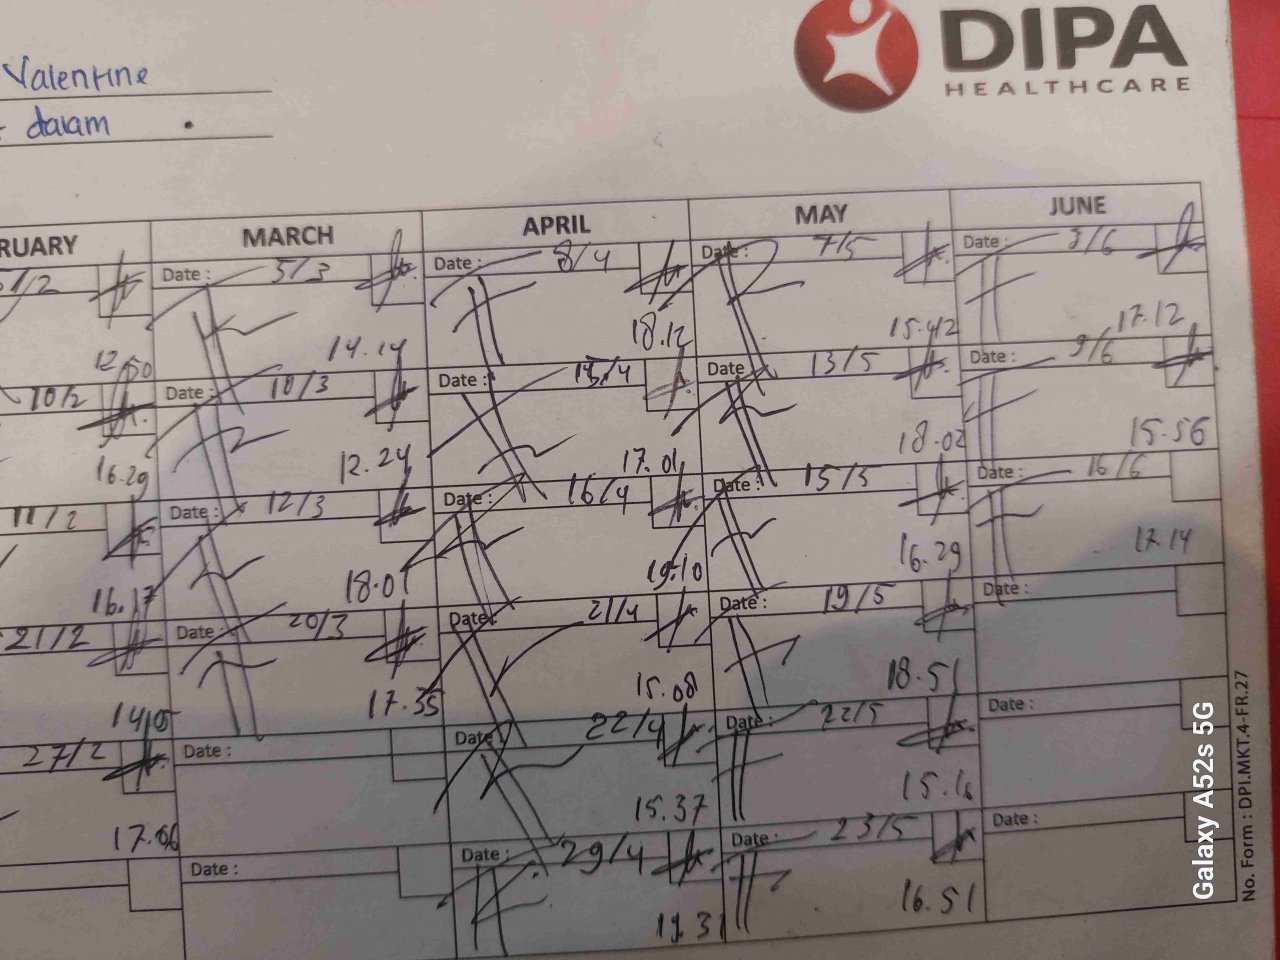 DIPA
HEALTHCARE
Valentine
dalam
RUARY MARCH APRIL MAY JUNE
Date : 5/3 Date : 8/4 Date : 7/5 Date : 3/6
12.50 14.14 18.12 15.42 17.12
10/2 Date : 10/3 Date : Date : 13/5 Date : 9/6
16.29 12.24 17.01 18.02 15.56
11/2 Date : 12/3 Date : 16/4 Date : 15/5 Date : 16/6
16.17 18.01 19.10 16.29 17.14
21/2 Date : 20/3 Date : 21/4 Date : 19/5 Date :
14.05 17.35 15.08 18.51
27/2 Date : Date : 22/4 Date : 22/5 Date :
17.06 15.37 15.16
Date : Date : 29/4 Date : 23/5 Date :
19.31 16.51
No. Form : DPI.MKT.4-FR.27
Galaxy A52s 5G